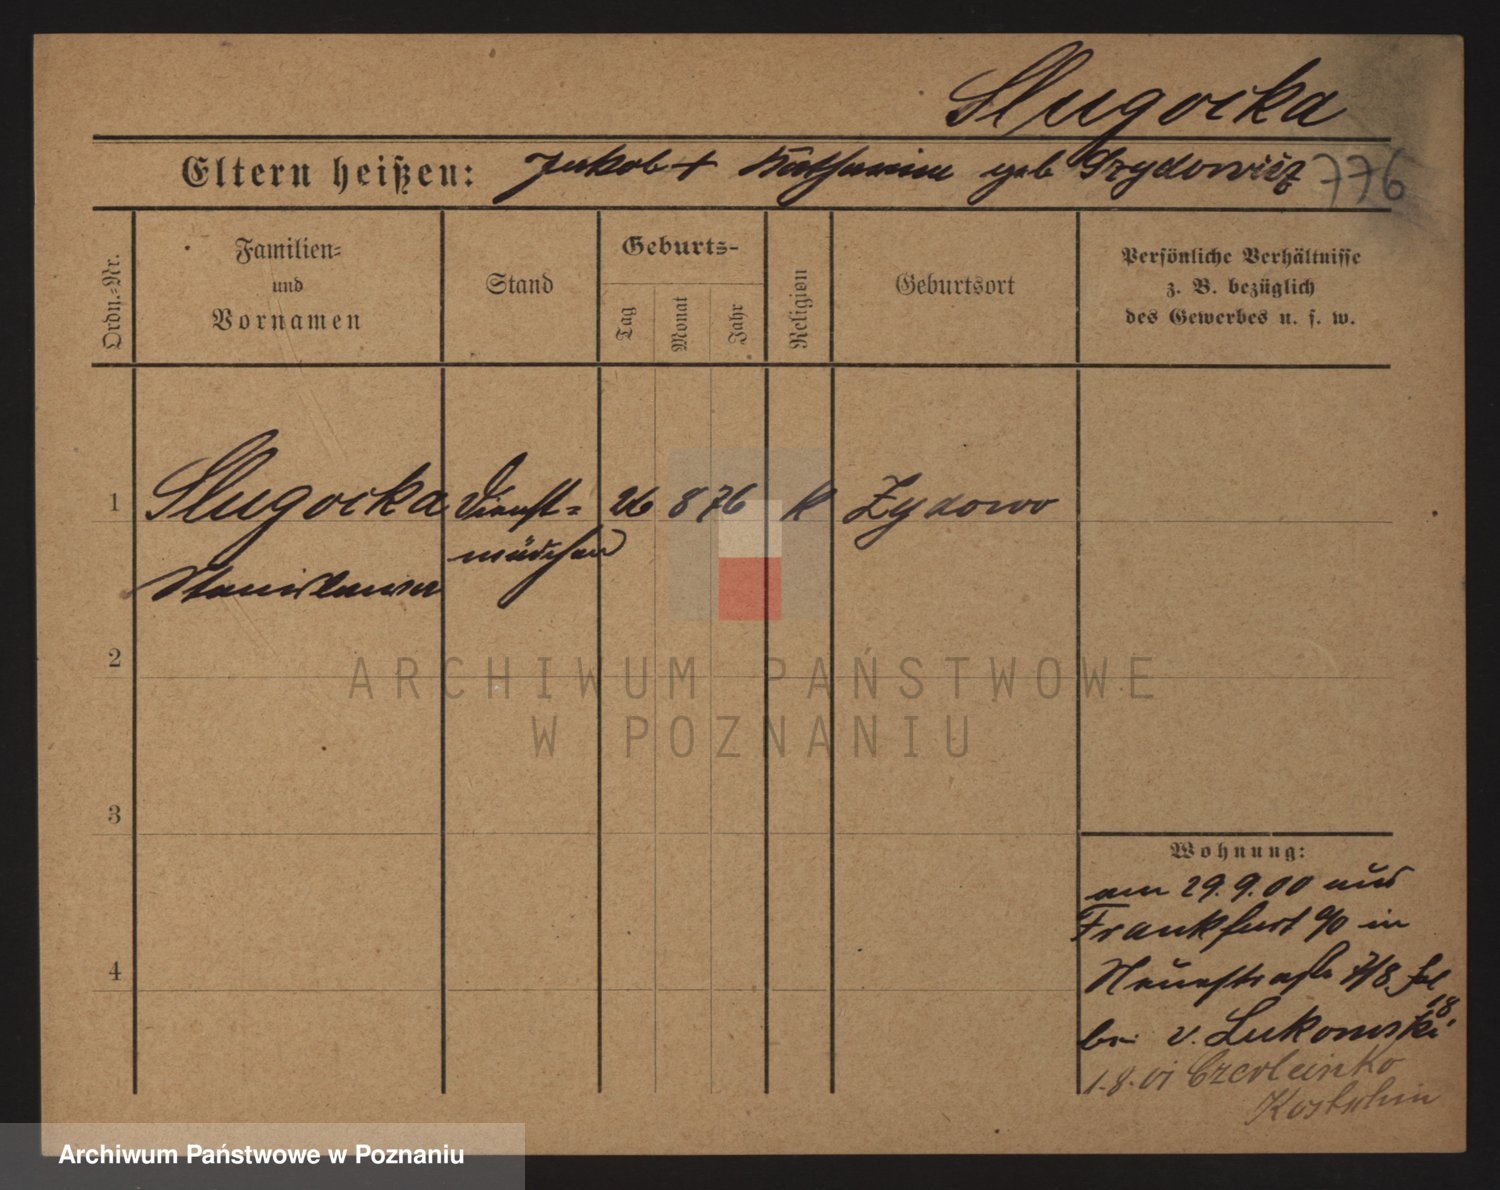 Slugocka
Eltern heißen: Jakob + Katharine geb Grzydowicz 776
Ordn.-Nr.
Familien-
und
Vornamen
Stand
Geburts-
Tag
Monat
Jahr
Religion
Geburtsort
Persönliche Verhältnisse
z. B. bezüglich
des Gewerbes u. s. w.
1 Slugocka Dienst- 26 8 76 K Zydowo
mädchen
Stanislawa
2
ARCHIWUM PAŃSTWOWE
W POZNANIU
3
Wohnung:
am 29.9.00 aus
Frankfurt a/O in
Neuestraße 7/8
18
bei v. Lukomski
4
1.8.01 Czerleinko
Kostschin
Archiwum Państwowe w Poznaniu